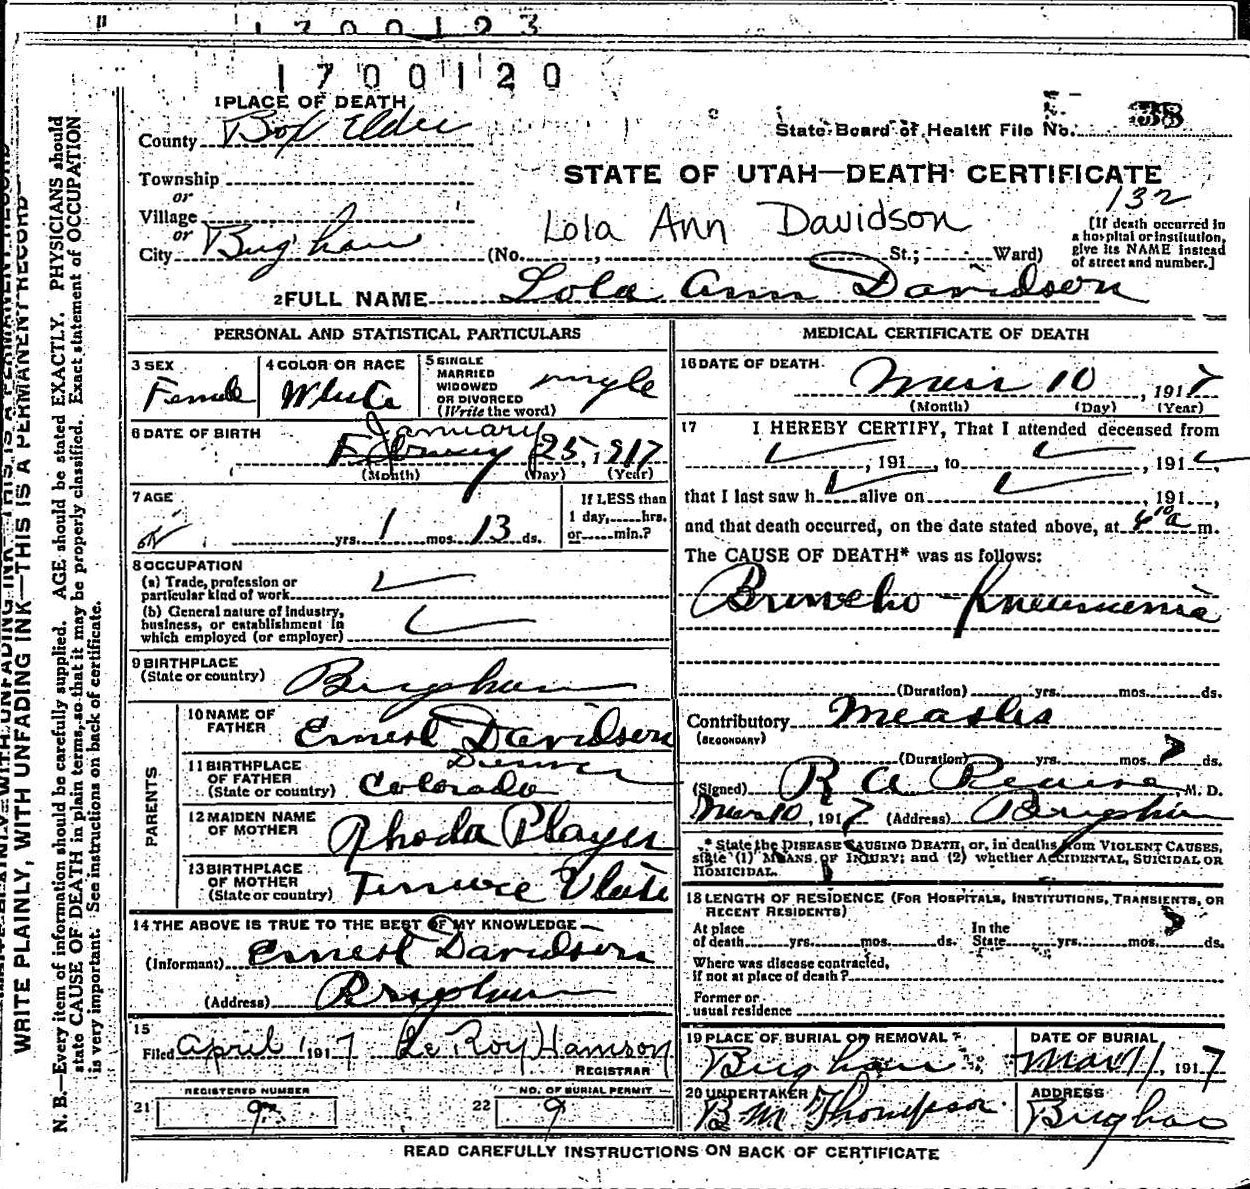 1700123
1700120
1 PLACE OF DEATH
County Box Elder
State Board of Health File No. 38
Township
STATE OF UTAH—DEATH CERTIFICATE
132
or
Village
or
City Brigham
Lola Ann Davidson
(No. , St.; Ward)
[If death occurred in
a hospital or institution,
give its NAME instead
of street and number.]
2 FULL NAME Lola Ann Davidson
PERSONAL AND STATISTICAL PARTICULARS
3 SEX
Female
4 COLOR OR RACE
White
5 SINGLE
MARRIED
WIDOWED
OR DIVORCED
(Write the word)
single
6 DATE OF BIRTH
January
25, 1917
(Month) (Day) (Year)
7 AGE
yrs. 1 mos. 13 ds.
If LESS than
1 day, hrs.
or min.?
8 OCCUPATION
(a) Trade, profession or
particular kind of work
(b) General nature of industry,
business, or establishment in
which employed (or employer)
9 BIRTHPLACE
(State or country)
Brigham
PARENTS
10 NAME OF
FATHER
Ernest Davidson
11 BIRTHPLACE
OF FATHER
(State or country)
Denver
Colorado
12 MAIDEN NAME
OF MOTHER
Rhoda Player
13 BIRTHPLACE
OF MOTHER
(State or country)
14 THE ABOVE IS TRUE TO THE BEST OF MY KNOWLEDGE
(Informant) Ernest Davidson
(Address) Brigham
15
Filed April 1 1917 Le Roy
REGISTRAR
REGISTERED NUMBER
21 9
NO. OF BURIAL PERMIT
22 9
MEDICAL CERTIFICATE OF DEATH
16 DATE OF DEATH
Mar 10, 1917
(Month) (Day) (Year)
17 I HEREBY CERTIFY, That I attended deceased from
, 191 , to , 191 ,
that I last saw h alive on , 191 ,
and that death occurred, on the date stated above, at 6 10 a m.
The CAUSE OF DEATH* was as follows:
Broncho-Pneumonia
(Duration) yrs. mos. ds.
Contributory Measles
(SECONDARY)
(Duration) yrs. mos. 7 ds.
(Signed) R A Pearse, M. D.
Mar 10, 1917 (Address) Brigham
* State the DISEASE CAUSING DEATH, or, in deaths from VIOLENT CAUSES,
state (1) MEANS OF INJURY; and (2) whether ACCIDENTAL, SUICIDAL OR
HOMICIDAL.
18 LENGTH OF RESIDENCE (FOR HOSPITALS, INSTITUTIONS, TRANSIENTS, OR
RECENT RESIDENTS)
At place
of death yrs. mos. ds.
In the
State yrs. mos. ds.
Where was disease contracted,
if not at place of death?
Former or
usual residence
19 PLACE OF BURIAL OR REMOVAL
Brigham
DATE OF BURIAL
Mar 11, 1917
20 UNDERTAKER
B. M. Thompson
ADDRESS
Brigham
READ CAREFULLY INSTRUCTIONS ON BACK OF CERTIFICATE
WRITE PLAINLY, WITH UNFADING INK—THIS IS A PERMANENT RECORD
N. B.—Every item of information should be carefully supplied. AGE should be stated EXACTLY. PHYSICIANS should
state CAUSE OF DEATH in plain terms, so that it may be properly classified. Exact statement of OCCUPATION
is very important. See instructions on back of certificate.